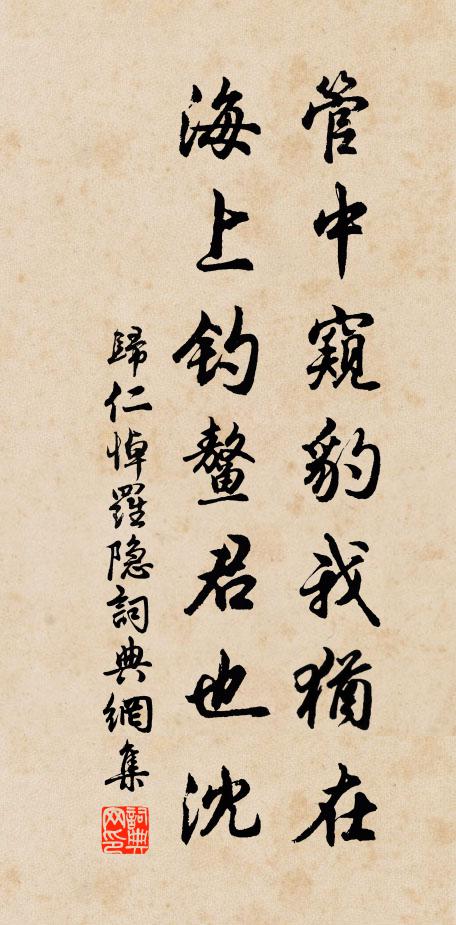 管中窺豹我猶在
海上釣鼇君也沈
歸仁悼羅隐詞典網集
詞典網印